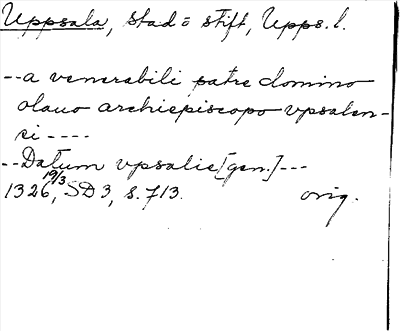 Uppsala, stad o stift, Upps. l.
-- a venerabili patre domino
olauo archiepiscopo vpsalen-
si ----
-- Datum vpsalie [gen.] ---
19/3
1326, SD 3, s. 713. orig.